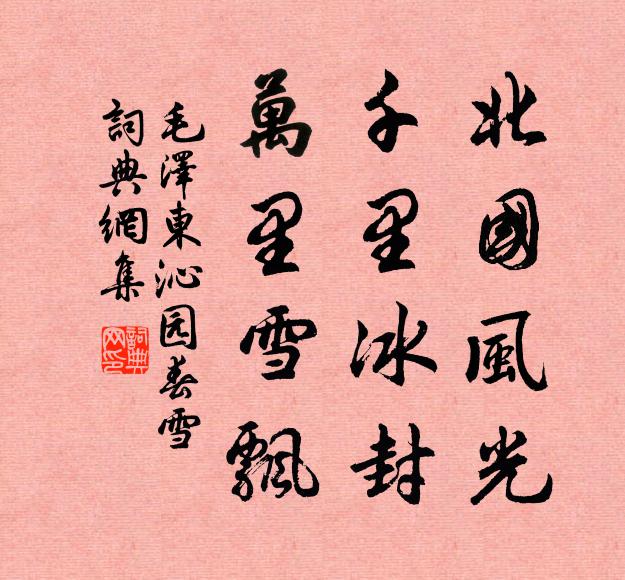 北國風光
千里冰封
萬里雪飄
毛澤東沁园春雪
詞典網集
詞典網印